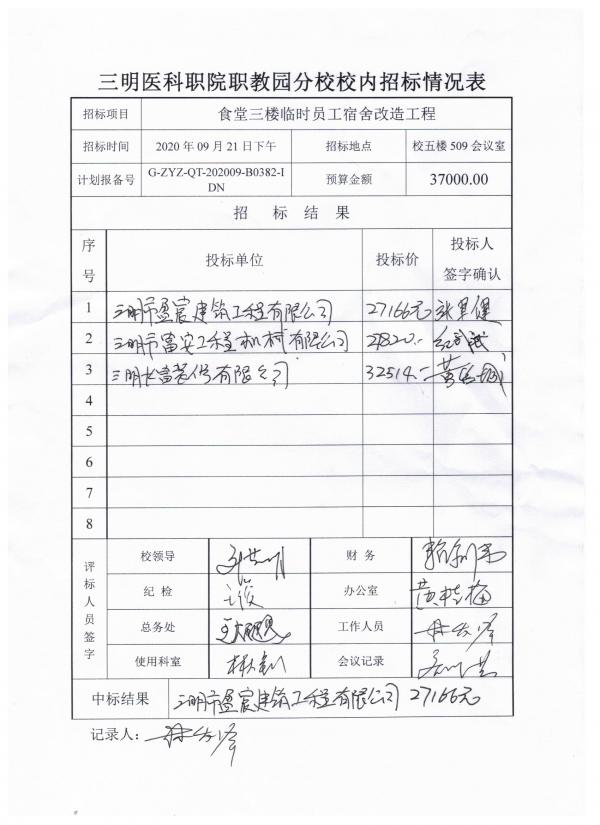 三明医科职院职教园分校校内招标情况表
招标项目 食堂三楼临时员工宿舍改造工程
招标时间 2020年09月21日下午 招标地点 校五楼509会议室
计划报备号 G-ZYZ-QT-202009-B0382-IDN 预算金额 37000.00
招 标 结 果
序号 投标单位 投标价 投标人签字确认
1 三明市盈宸建筑工程有限公司 27166元
2 三明市富安工程机械有限公司
3 有限公司 32514.
4
5
6
7
8
评标人员签字
校领导 财 务
纪 检 办公室 黄桂梅
总务处 工作人员
使用科室 会议记录
中标结果 三明市盈宸建筑工程有限公司 27166元
记录人：